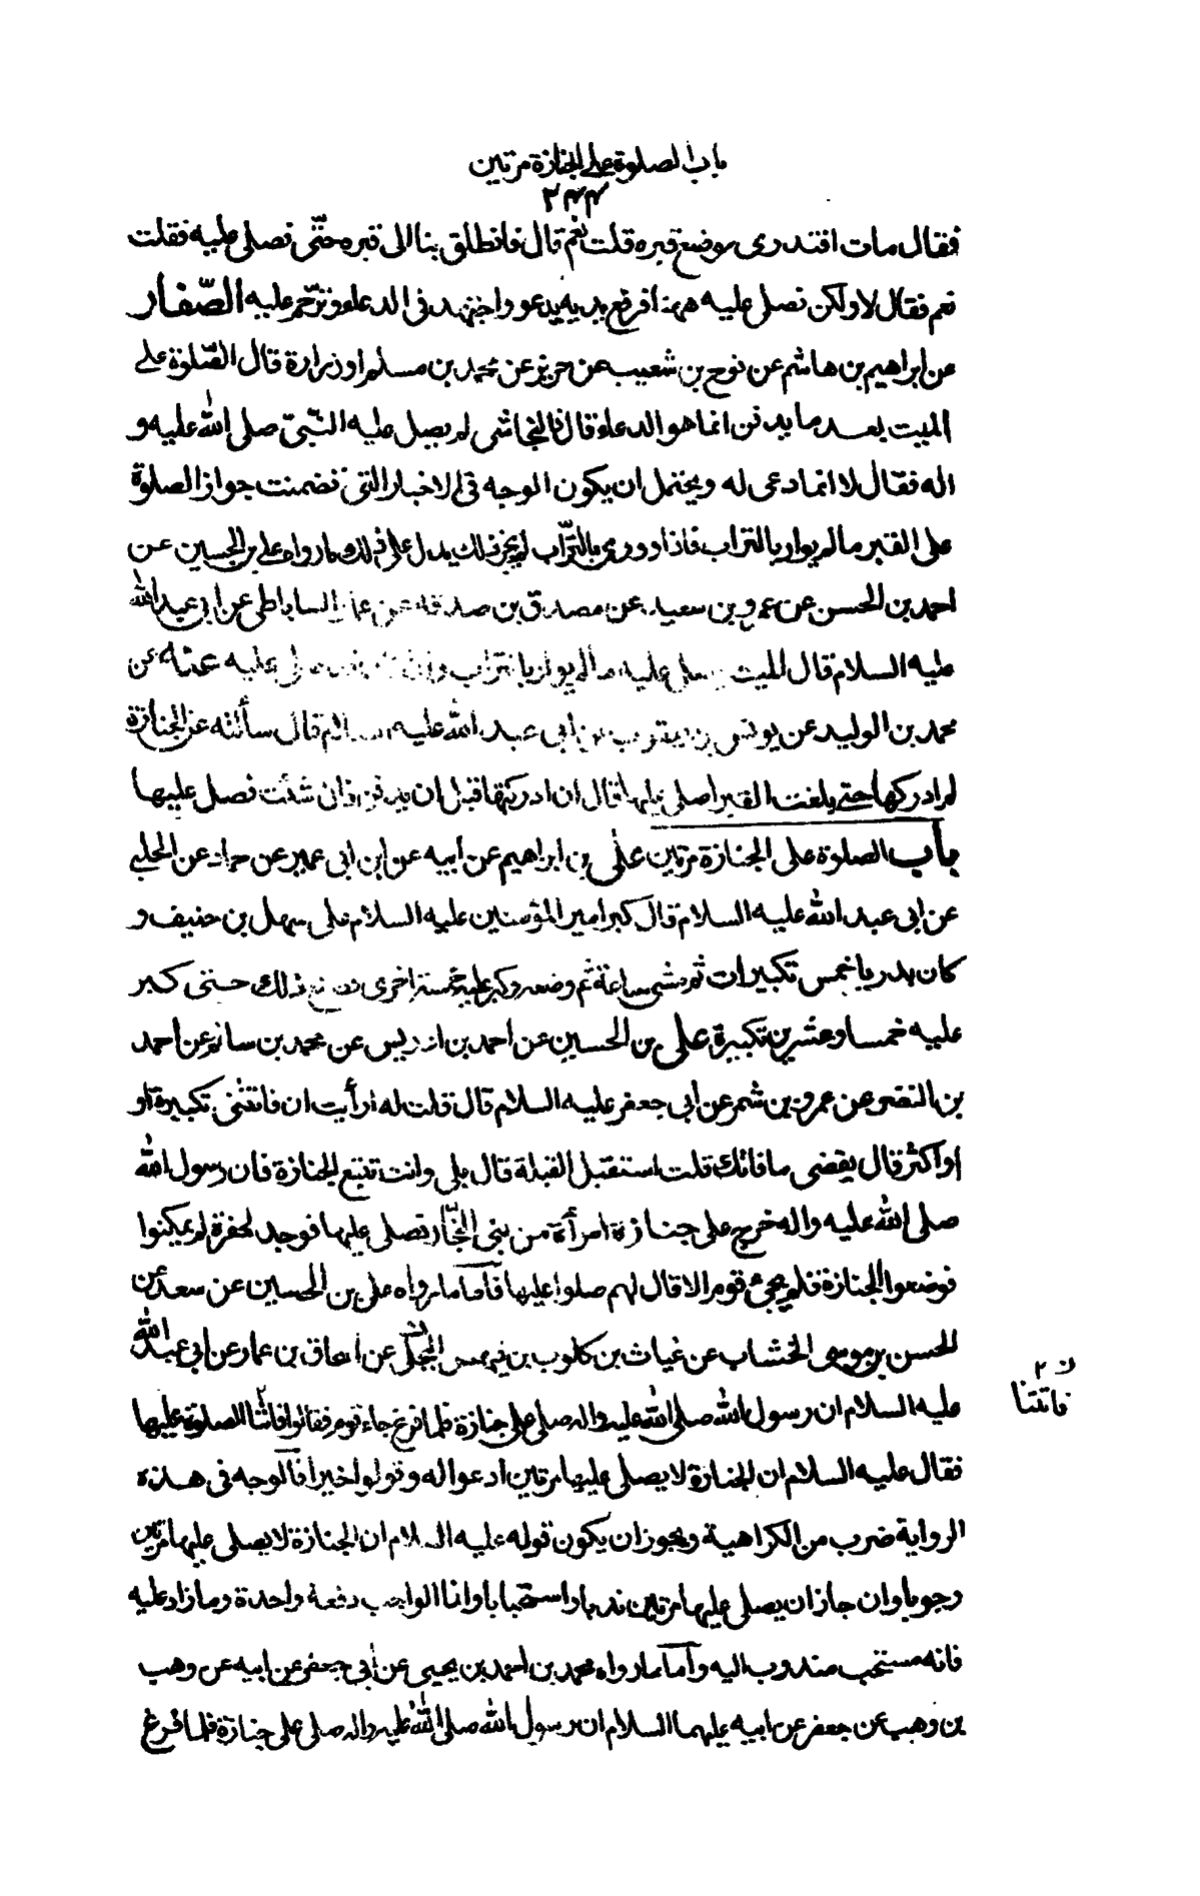 باب الصلوة على الجنازة مرتين
٢٤٤
فقال مات افتدرى موضع قبره قلت نعم قال فانطلق بنا الى قبره حتّى نصلى عليه فقلت
نعم فقال لا ولكن نصلى عليه ههنا فرفع يديه يدعو واجتهد فى الدعاء وترّحم عليه الصّفار
عن ابراهيم بن هاشم عن نوح بن شعيب عن حريز عن محمد بن مسلم او زرارة قال الصّلوة على
الميت بعد ما يدفن انما هو الدعاء قال فالنجاشى لم يصل عليه النّبىّ صلى الله عليه و
اله فقال لا انما دعى له ويحتمل ان يكون الوجه فى الاخبار التى تضمنت جواز الصلوة
على القبر ما لم يوار بالتراب فاذا وورى بالتّراب لم يجز ذلك يدل على ذلك ما رواه على بن الحسين عن
احمد بن الحسن عن عمرو بن سعيد عن مصدق بن صدقة عن عمار الساباطى عن ابى عبد الله
عليه السلام قال الميت يصلى عليه ما لم يوار بالتراب وان صلى عليه عنه عن
محمد بن الوليد عن يونس بن يعقوب عن ابى عبد الله عليه السلام قال سألته عن الجنازة
لم ادركها حتى بلغت القبر اصلى عليها قال ان ادركتها قبل ان يدفن فان شئت فصل عليها
باب الصلوة على الجنازة مرتين على بن ابراهيم عن ابيه عن ابن ابى عمير عن حماد عن الحلبى
عن ابى عبد الله عليه السلام قال كبر امير المؤمنين عليه السلام على سهل بن حنيف و
كان بدريا خمس تكبيرات ثم مشى ساعة ثم وضعه وكبر عليه خمسة اخرى فصنع ذلك حتى كبر
عليه خمسا وعشرين تكبيرة على بن الحسين عن احمد بن ادريس عن محمد بن سالم عن احمد
بن النضر عن عمرو بن شمر عن ابى جعفر عليه السلام قال قلت له ارأيت ان فاتتنى تكبيرة او
او اكثر قال يقضى ما فاتك قلت استقبل القبلة قال بلى وانت تتبع الجنازة فان رسول الله
صلى الله عليه واله خرج على جنازة امرأة من بنى النجّار فصلى عليها فوجد الحفرة لم يمكنوا
فوضعوا الجنازة فلم يجئ قوم الا قال لهم صلوا عليها فأما ما رواه على بن الحسين عن سعد عن
الحسن بن موسى الخشاب عن غياث بن كلوب بن فيهس البجلى عن اسحاق بن عمار عن ابى عبد الله
عليه السلام ان رسول الله صلى الله عليه واله صلى على جنازة فلما فرغ جاء قوم فقالوا فاتتنا الصلوة عليها
ن ٢
فاتتنا
فقال عليه السلام ان الجنازة لا يصلى عليها مرتين ادعوا له وقولوا خيرا فالوجه فى هذه
الرواية ضرب من الكراهية ويجوز ان يكون قوله عليه السلام ان الجنازة لا يصلى عليها مرتين
وجوبا وان جاز ان يصلى عليها مرتين ندبا واستحبابا وانما الواجب دفعة واحدة وما زاد عليه
فانه مستحب مندوب اليه وأما ما رواه محمد بن احمد بن يحيى عن ابى جعفر عن ابيه عن وهب
بن وهب عن جعفر عن ابيه عليهما السلام ان رسول الله صلى الله عليه واله صلى على جنازة فلما فرغ